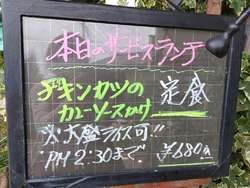 本日のサービスランチ
チキンカツの
カレーソースかけ 定食
※大盛ライス可!!
PM 2:30まで ¥680